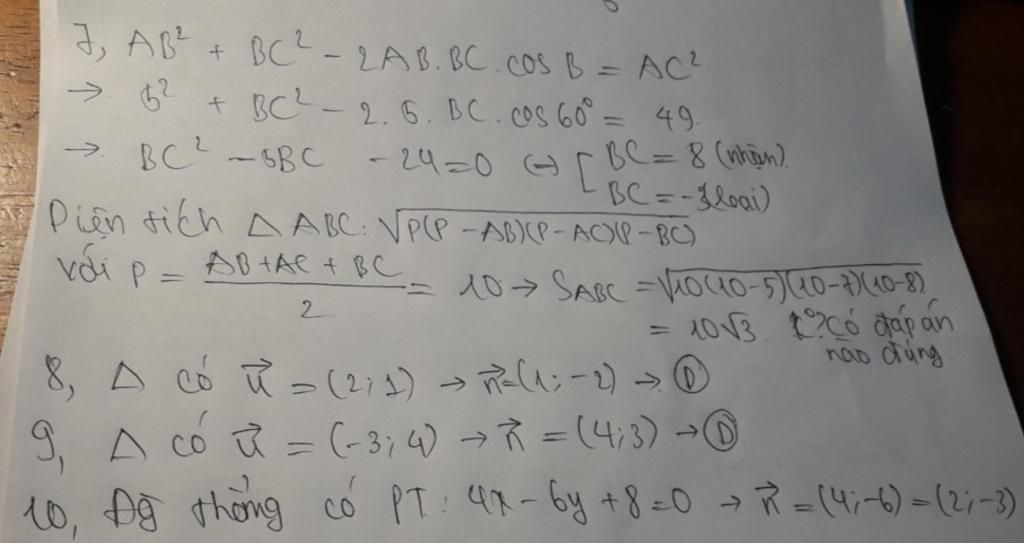 7, AB² + BC² - 2AB.BC.cosB = AC²
→ 5² + BC² - 2.5.BC.cos60° = 49.
→ BC² - 5BC - 24 = 0 (→) [ BC = 8 (nhận).
BC = -3(loại)
Diện tích Δ ABC: √P(P - AB)(P - AC)(P - BC)
với P = AB + AC + BC / 2 = 10 → S_ABC = √10(10-5)(10-7)(10-8)
= 10√3. Có đáp án
nào đúng.
8, Δ có u⃗ = (2;1) → n⃗ = (1;-2) → Ⓓ
9, Δ có u⃗ = (-3;4) → n⃗ = (4;3) → Ⓓ
10, Đg thẳng có PT: 4x - 6y + 8 = 0 → n⃗ = (4;-6) = (2;-3)